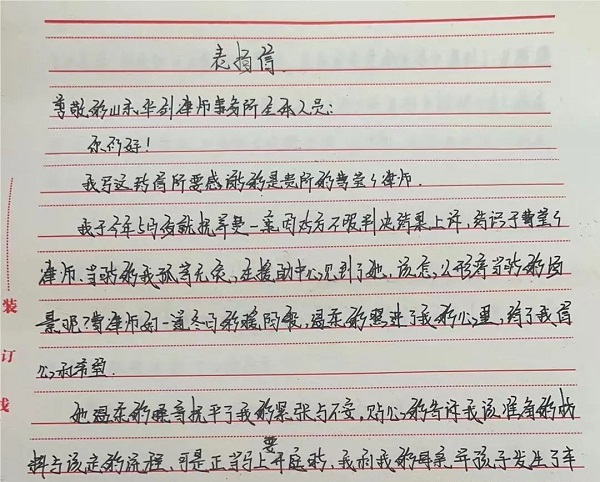 表扬信.
尊敬的山东华列律师事务所全体人员:
你们好!
我写这封信所要感谢的是贵所的曹莹々律师.
我于今年5月份就抚养费一案因对方不服判决结果上诉,结识了曹莹々
律师.当时的我孤苦无依,在援助中心见到了她,该怎么形容当时的场
景呢?曹律师如一道冬日的暖阳般,温柔的照进了我的心里,给了我信
心和希望.
她温柔的嗓音抚平了我的紧张与不安,贴心的告诉我该准备的材
料与该走的流程.可是正当马上要开庭时,我和我的母亲,孩子发生了车
装
订
线